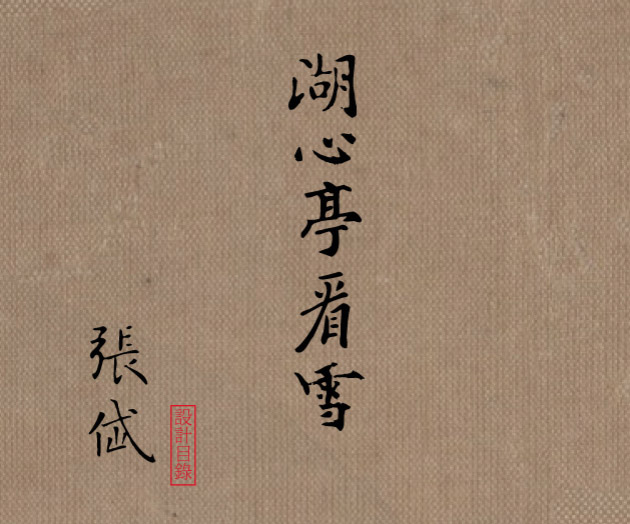 湖心亭看雪
張岱
設計目錄